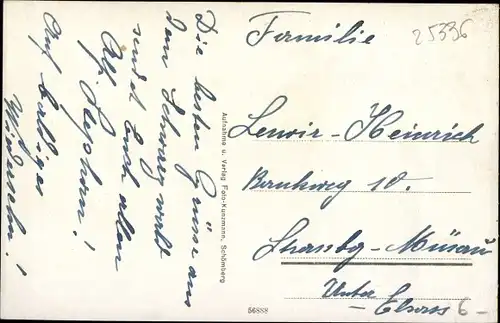 Die besten Grüsse aus
dem Schwarzwald
sendet Euch allen
Alf.
Auf baldiges
Wiedersehn!
Aufnahme u. Verlag Foto-Kunzmann, Schömberg
56888
25336
Familie
Lenoir-Heinrich
Bankweg 10.
Strassbg-Musau
Unter Elsass
6-